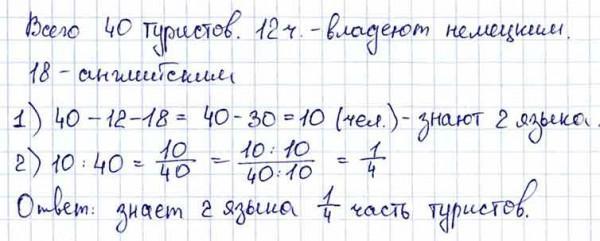 Всего 40 туристов. 12 ч. - владеют немецким.
18 - английским
1) 40 - 12 - 18 = 40 - 30 = 10 (чел.) - знают 2 языка.
2) 10 : 40 = 10/40 = 10:10/40:10 = 1/4
Ответ: знает 2 языка 1/4 часть туристов.